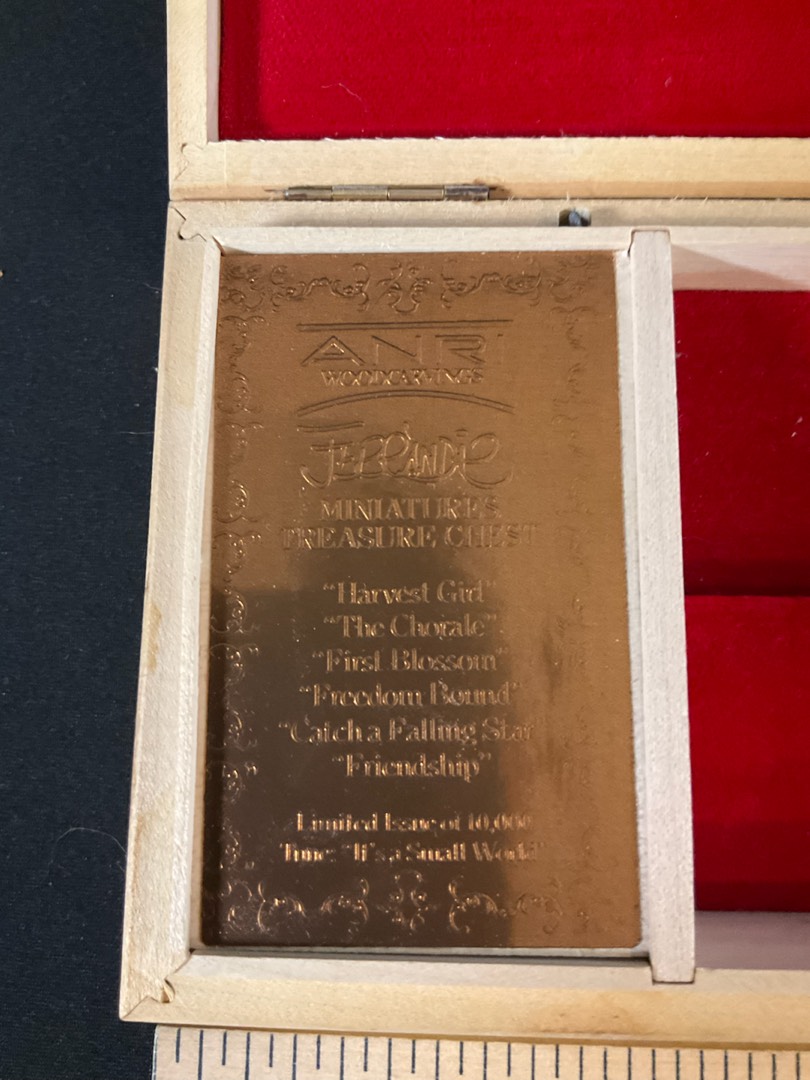 ANRI
WOODCARVINGS
FERRÁNDIZ
MINIATURES
TREASURE CHEST
"Harvest Girl"
"The Chorale"
"First Blossom"
"Freedom Bound"
"Catch a Falling Star"
"Friendship"
Limited Issue of 10,000
Tune: "It's a Small World"